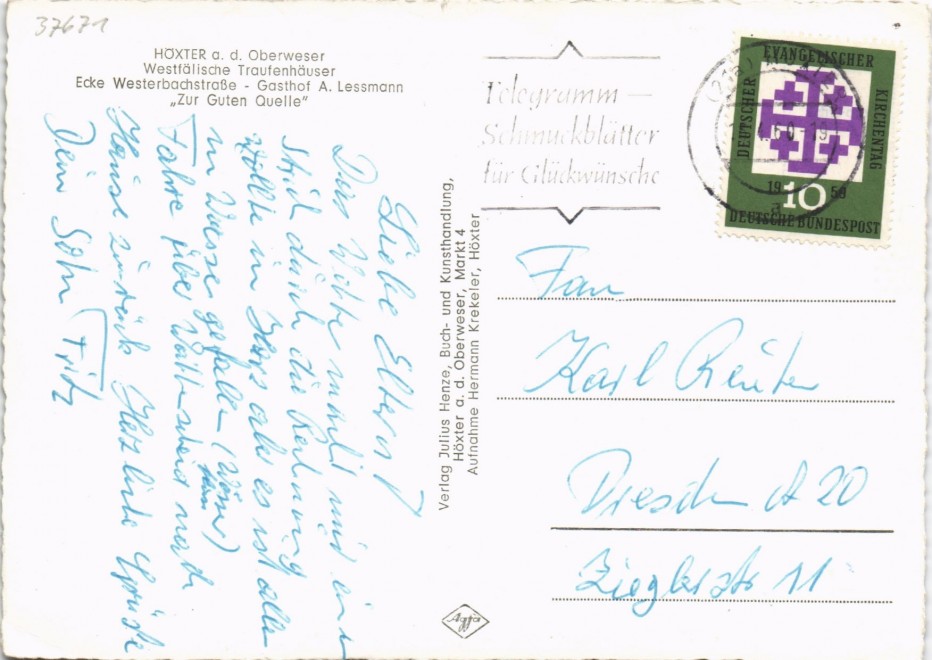 37671
HÖXTER a. d. Oberweser
Westfälische Traufenhäuser
Ecke Westerbachstraße - Gasthof A. Lessmann
„Zur Guten Quelle"
Liebe Eltern!
Das Wetter macht mir ein
Strich durch die Rechnung
wollte in Harz aber es ist alles
im Wasser gefallen (Wörner)
Fahre über Wattenscheid nach
Hause zurück Herzliche Grüße
Dein Sohn Fritz
Verlag Julius Henze, Buch- und Kunsthandlung,
Höxter a. d. Oberweser, Markt 4
Aufnahme Hermann Krekeler, Höxter
Telegramm —
Schmuckblätter
für Glückwünsche
DEUTSCHER EVANGELISCHER KIRCHENTAG
19 10 56
DEUTSCHE BUNDESPOST
Karl Reuter
Dresden A 20
Zieglerstr 11
Agfa